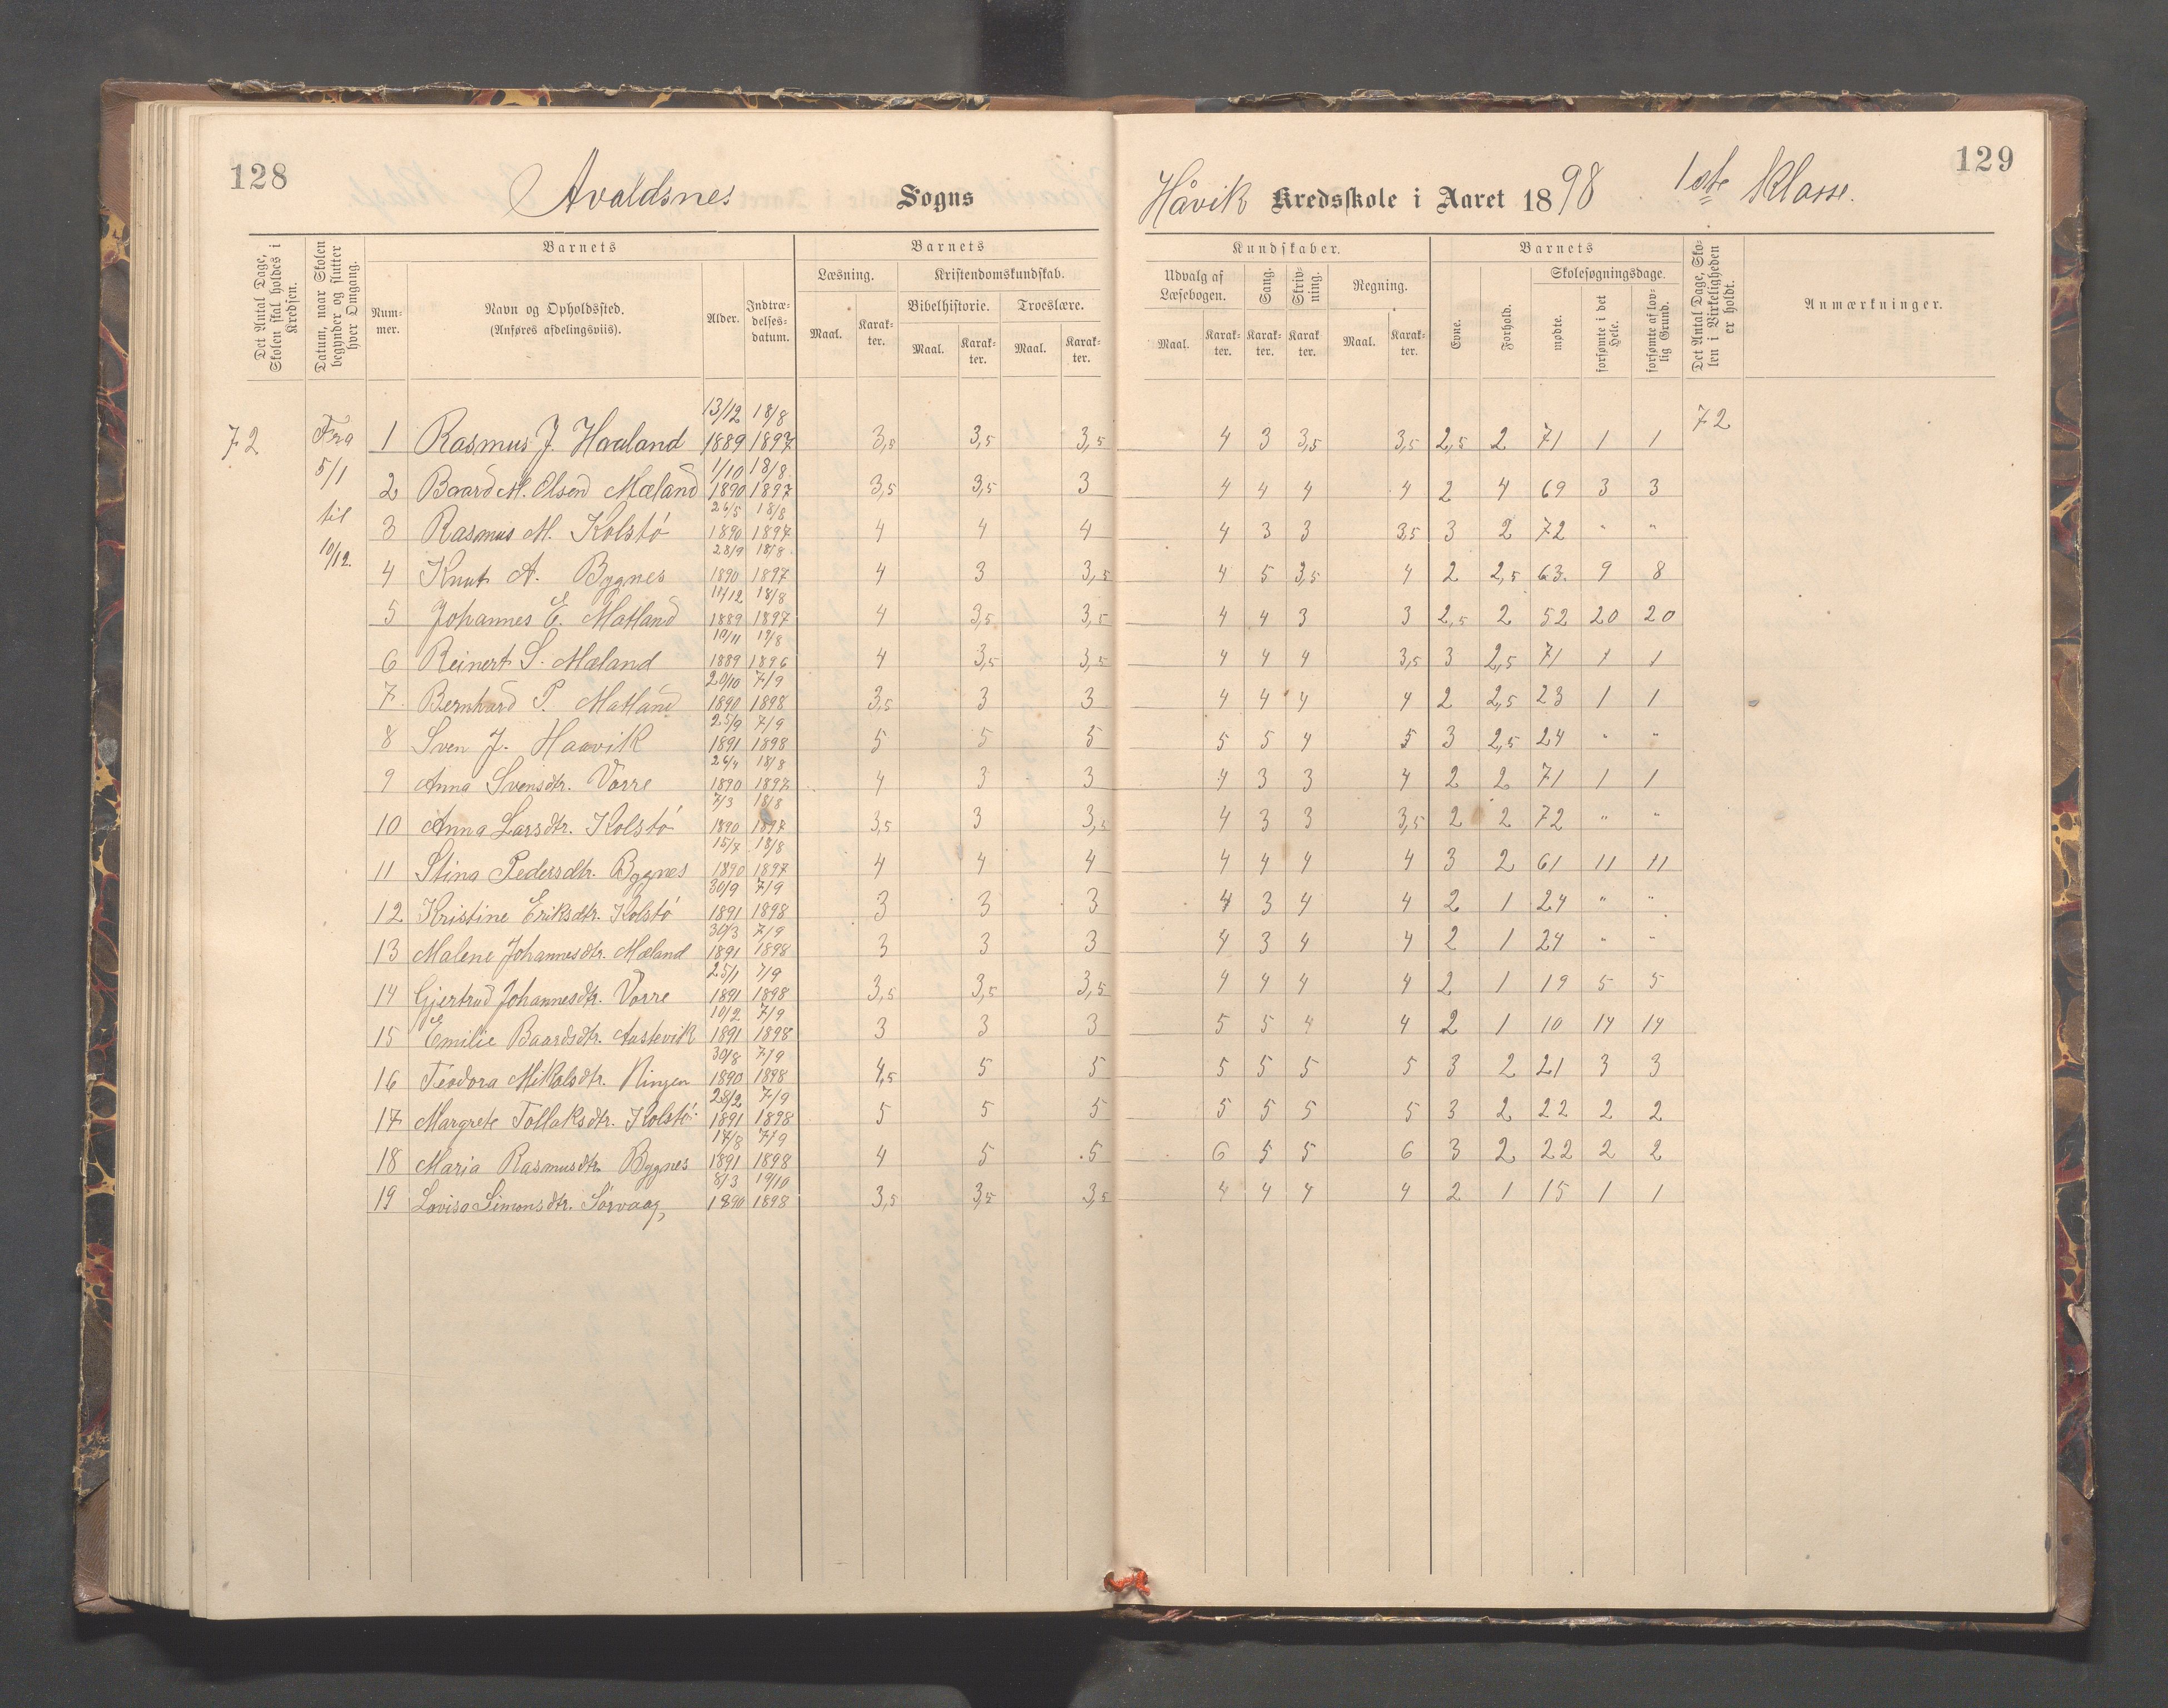 128
Avaldsnes Sogns
Håvik Kredsskole i Aaret 1898 1ste Klasse.
129
Det Antal Dage, Skolen skal holdes i Kredsen.
Datum, naar Skolen begynder og slutter hver Omgang.
Barnets
Num-mer.
Navn og Opholdssted. (Anføres afdelingsviis).
Alder.
Indtræ-delses-datum.
Barnets
Læsning.
Maal.
Karak-ter.
Kristendomskundskab.
Bibelhistorie.
Maal.
Karak-ter.
Troeslære.
Maal.
Karak-ter.
Kundskaber.
Udvalg af Læsebogen.
Maal.
Karak-ter.
Sang.
Karak-ter.
Skriv-ning.
Karak-ter.
Regning.
Maal.
Karak-ter.
Barnets
Evne.
Forhold.
Skolesøgningsdage.
mødte.
forsømte i det Hele.
forsømte af lov-lig Grund.
Det Antal Dage, Sko-len i Virkeligheden er holdt.
Anmærkninger.
72 Fra 5/1 til 10/12.
72
1 Rasmus J. Haaland 13/12 1889 18/8 1897 3,5 3,5 3,5 4 3 3,5 3,5 2,5 2 71 1 1
2 Baard M. Olsen Mæland 1/10 1890 18/8 1897 3,5 3,5 3 4 4 4 4 2 4 69 3 3
3 Rasmus M. Kolstø 26/5 1890 18/8 1897 4 4 4 4 3 3 3,5 3 2 72 " "
4 Knut A. Bygnes 28/9 1890 18/8 1897 4 3 3,5 4 5 3,5 4 2 2,5 63 9 8
5 Johannes E. Matland 11/12 1889 18/8 1897 4 3,5 3,5 4 4 3 3 2,5 2 52 20 20
6 Reinert S. Mæland 10/11 1889 19/8 1896 4 3,5 3,5 4 4 4 3,5 3 2,5 71 1 1
7 Bernhard P. Matland 20/10 1890 7/9 1898 3,5 3 3 4 4 4 4 2 2,5 23 1 1
8 Sven J. Haavik 25/9 1891 7/9 1898 5 5 5 5 5 4 5 3 2,5 24 " "
9 Anna Svensdtr. Vorre 26/4 1890 18/8 1897 4 3 3 4 3 3 4 2 2 71 1 1
10 Anna Larsdtr. Kolstø 7/3 1890 18/8 1897 3,5 3 3,5 4 3 3 3,5 2 2 72 " "
11 Stina Pedersdtr. Bygnes 15/7 1890 18/8 1897 4 4 4 4 4 4 4 3 2 61 11 11
12 Kristine Eriksdtr. Kolstø 30/9 1891 7/9 1898 3 3 3 4 3 4 4 2 1 24 " "
13 Malene Johannesdtr. Mæland 30/3 1891 7/9 1898 3 3 3 4 3 4 4 2 1 24 " "
14 Gjertrud Johannesdtr. Vorre 25/1 1891 7/9 1898 3,5 3,5 3,5 4 4 4 4 2 1 19 5 5
15 Emilie Baardsdtr. Aastevik 10/2 1891 7/9 1898 3 3 3 5 5 4 4 2 1 10 14 14
16 Teodora Mikalsdtr. Ringen 30/8 1890 7/9 1898 4,5 5 5 5 5 5 5 3 2 21 3 3
17 Margrete Tollaksdtr. Kolstø 28/2 1891 7/9 1898 5 5 5 5 5 5 5 3 2 22 2 2
18 Maria Rasmusdtr. Bygnes 17/8 1891 7/9 1898 4 5 5 6 5 5 6 3 2 22 2 2
19 Lovisa Simonsdtr. Sørvaag 8/3 1890 19/10 1898 3,5 3,5 3,5 4 4 4 4 2 1 15 1 1